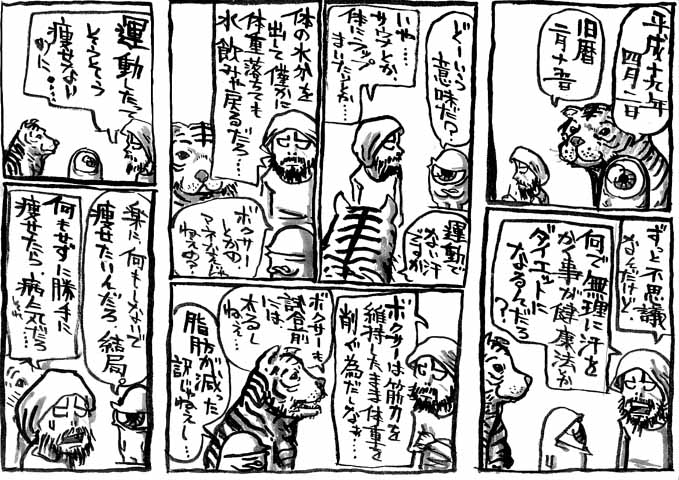 平成十九年
四月二日
旧暦
二月十五日
ずっと不思議
なんだけど、
何で無理に汗を
かく事が健康法とか
ダイエットに
なるんだろ
？
どーいう
意味だ？
いや…
サウナとか
体にラップ
まいたりとか…
運動で
ない汗
ですか
体の水分を
出して僅かに
体重落ちても
水飲みゃ戻るだろ…
ボクサー
とかの
マネなんじゃ
ねぇの？
ボクサーは筋力を
維持したまま体重を
削ぐ為だしなぁ…
ボクサーも
試合前
には
太るし
ねぇ…
脂肪が減った
訳じゃねぇし…
運動したって
そうそう
痩せない
のに…
楽に何もしないで
痩せたいんだろ、結局。
何もせずに勝手に
痩せたら、病気だろ